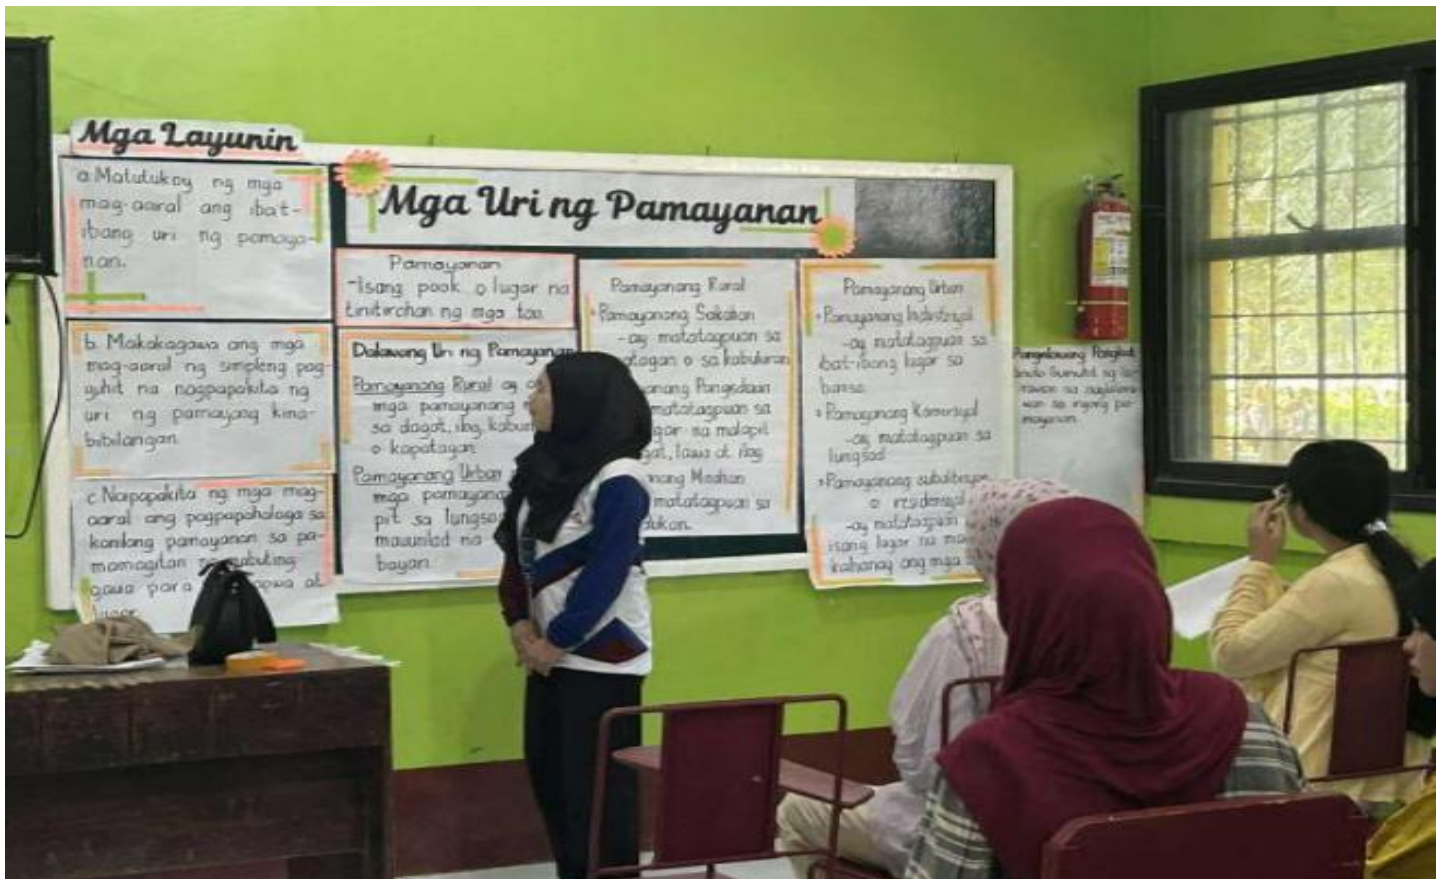 Mga Layunin
a. Matutukoy ng mga
mag-aaral ang ibat-
ibang uri ng pamaya-
nan.
b. Makakagawa ang mga
mag-aaral ng simpleng pag-
guhit na nagpapakita ng
uri ng pamayang kina-
bibilangan
c. Naipapakita ng mga mag-
aaral ang pagpapahalaga sa
kanilang pamayanan sa pa-
mamagitan
gawa para at
Mga Uri ng Pamayanan
Pamayanan
-Isang pook o lugar na
tinitirahan ng mga tao.
Dalawang Uri ng Pamayanan
Pamayanang Rural ay
mga pamayanang
sa dagat, ilog,
o kapatagan
Pamayanang Urban
mga
pit sa
maunlad na
bayan.
Pamayanang Rural
Pamayanang Sakahan
-ay matatagpuan sa
o sa kabukiran
Pangisdaan
matatagpuan sa
na malapit
lawa at ilog
Minahan
matatagpuan sa
Pamayanang Urban
• Pamayanang Industriyal
-ay matatagpuan sa
ibat-ibang lugar sa
bansa
• Pamayanang Komersyal
-ay matatagpuan sa
lungsod
• Pamayanang
o residensyal
-ay matatagpuan
isang lugar na
ang mga
Pangalawang Pangkat
Gumuhit ng la-
rawan na
sa inyong pa-
mayanan